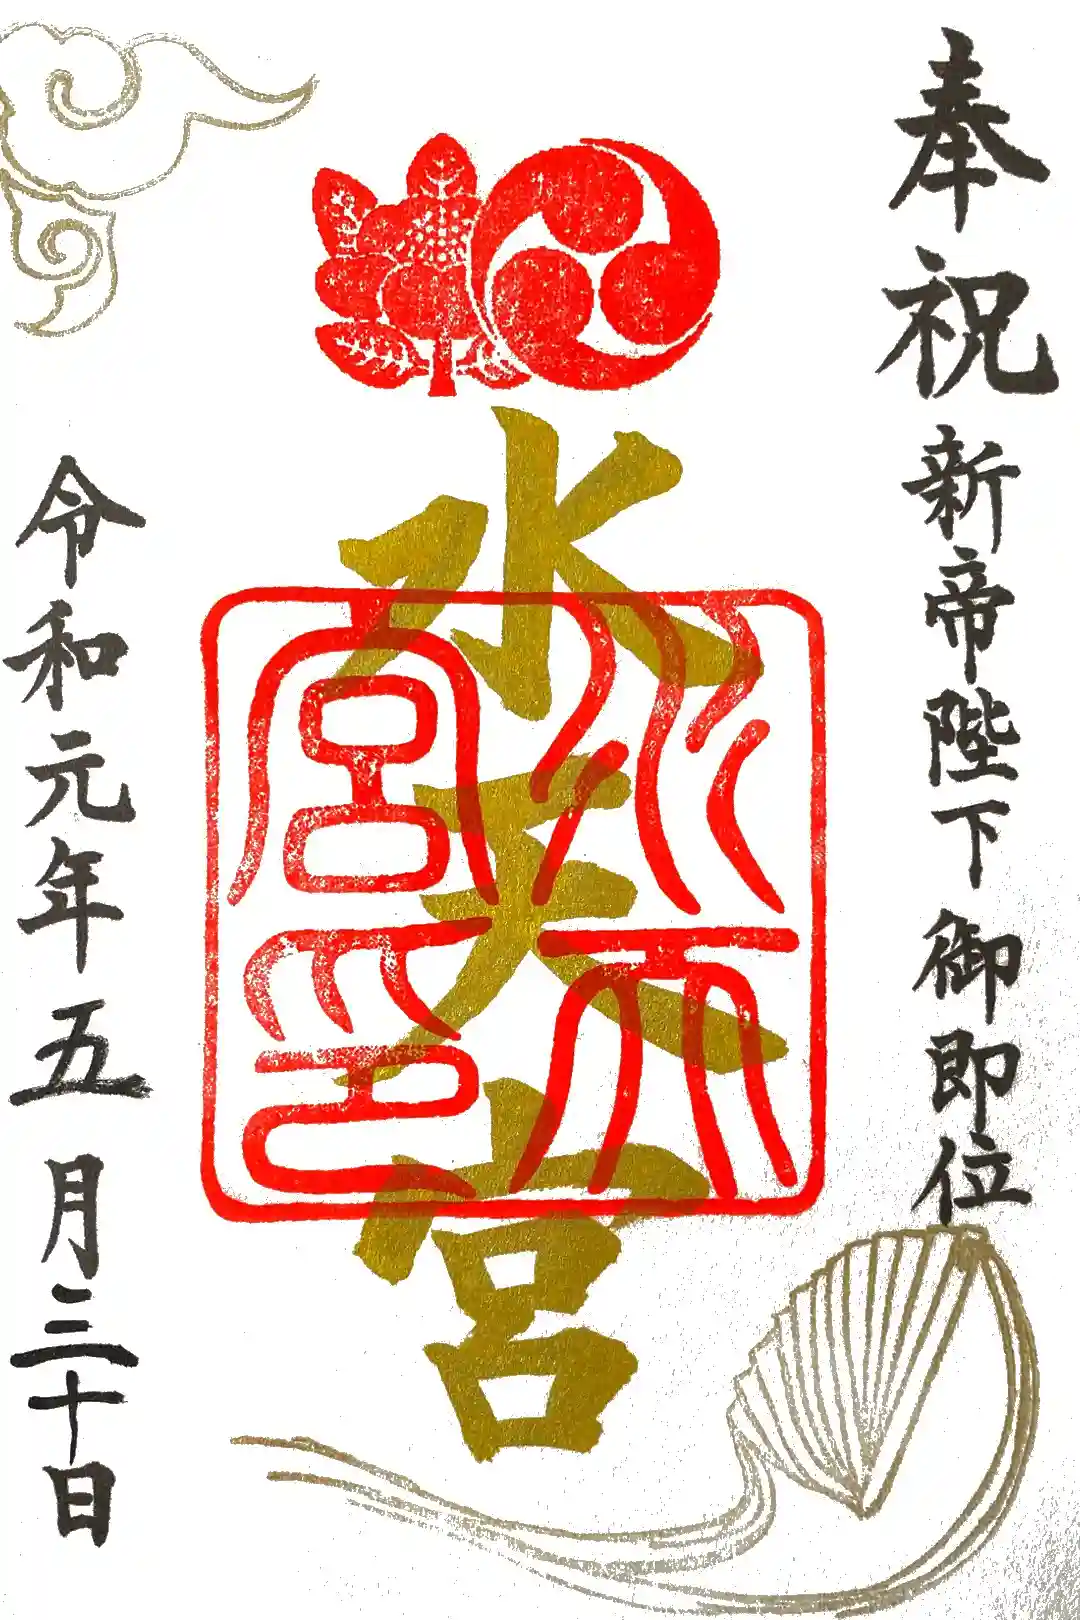 奉祝新帝陛下御即位
水天宮
水天宮印
令和元年五月三十日